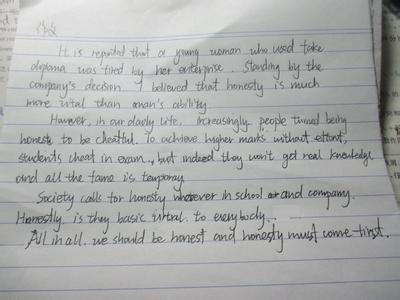 It is reported that a young woman who used fake
diploma was fired by her enterprise. Standing by the
company's decision, I believed that honesty is much
more vital than onan's ability.
However, in our daoly life, increasingly people turned being
honest to be cheatful. To achieve higher marks without effort,
students cheat in exam, but indeed they won't get real knowledge
and all the fame is temporay
Society calls for honesty wherever in school and company.
Honestly is they basic virtal to everybody.
All in all. we should be honest and honesty must come first.